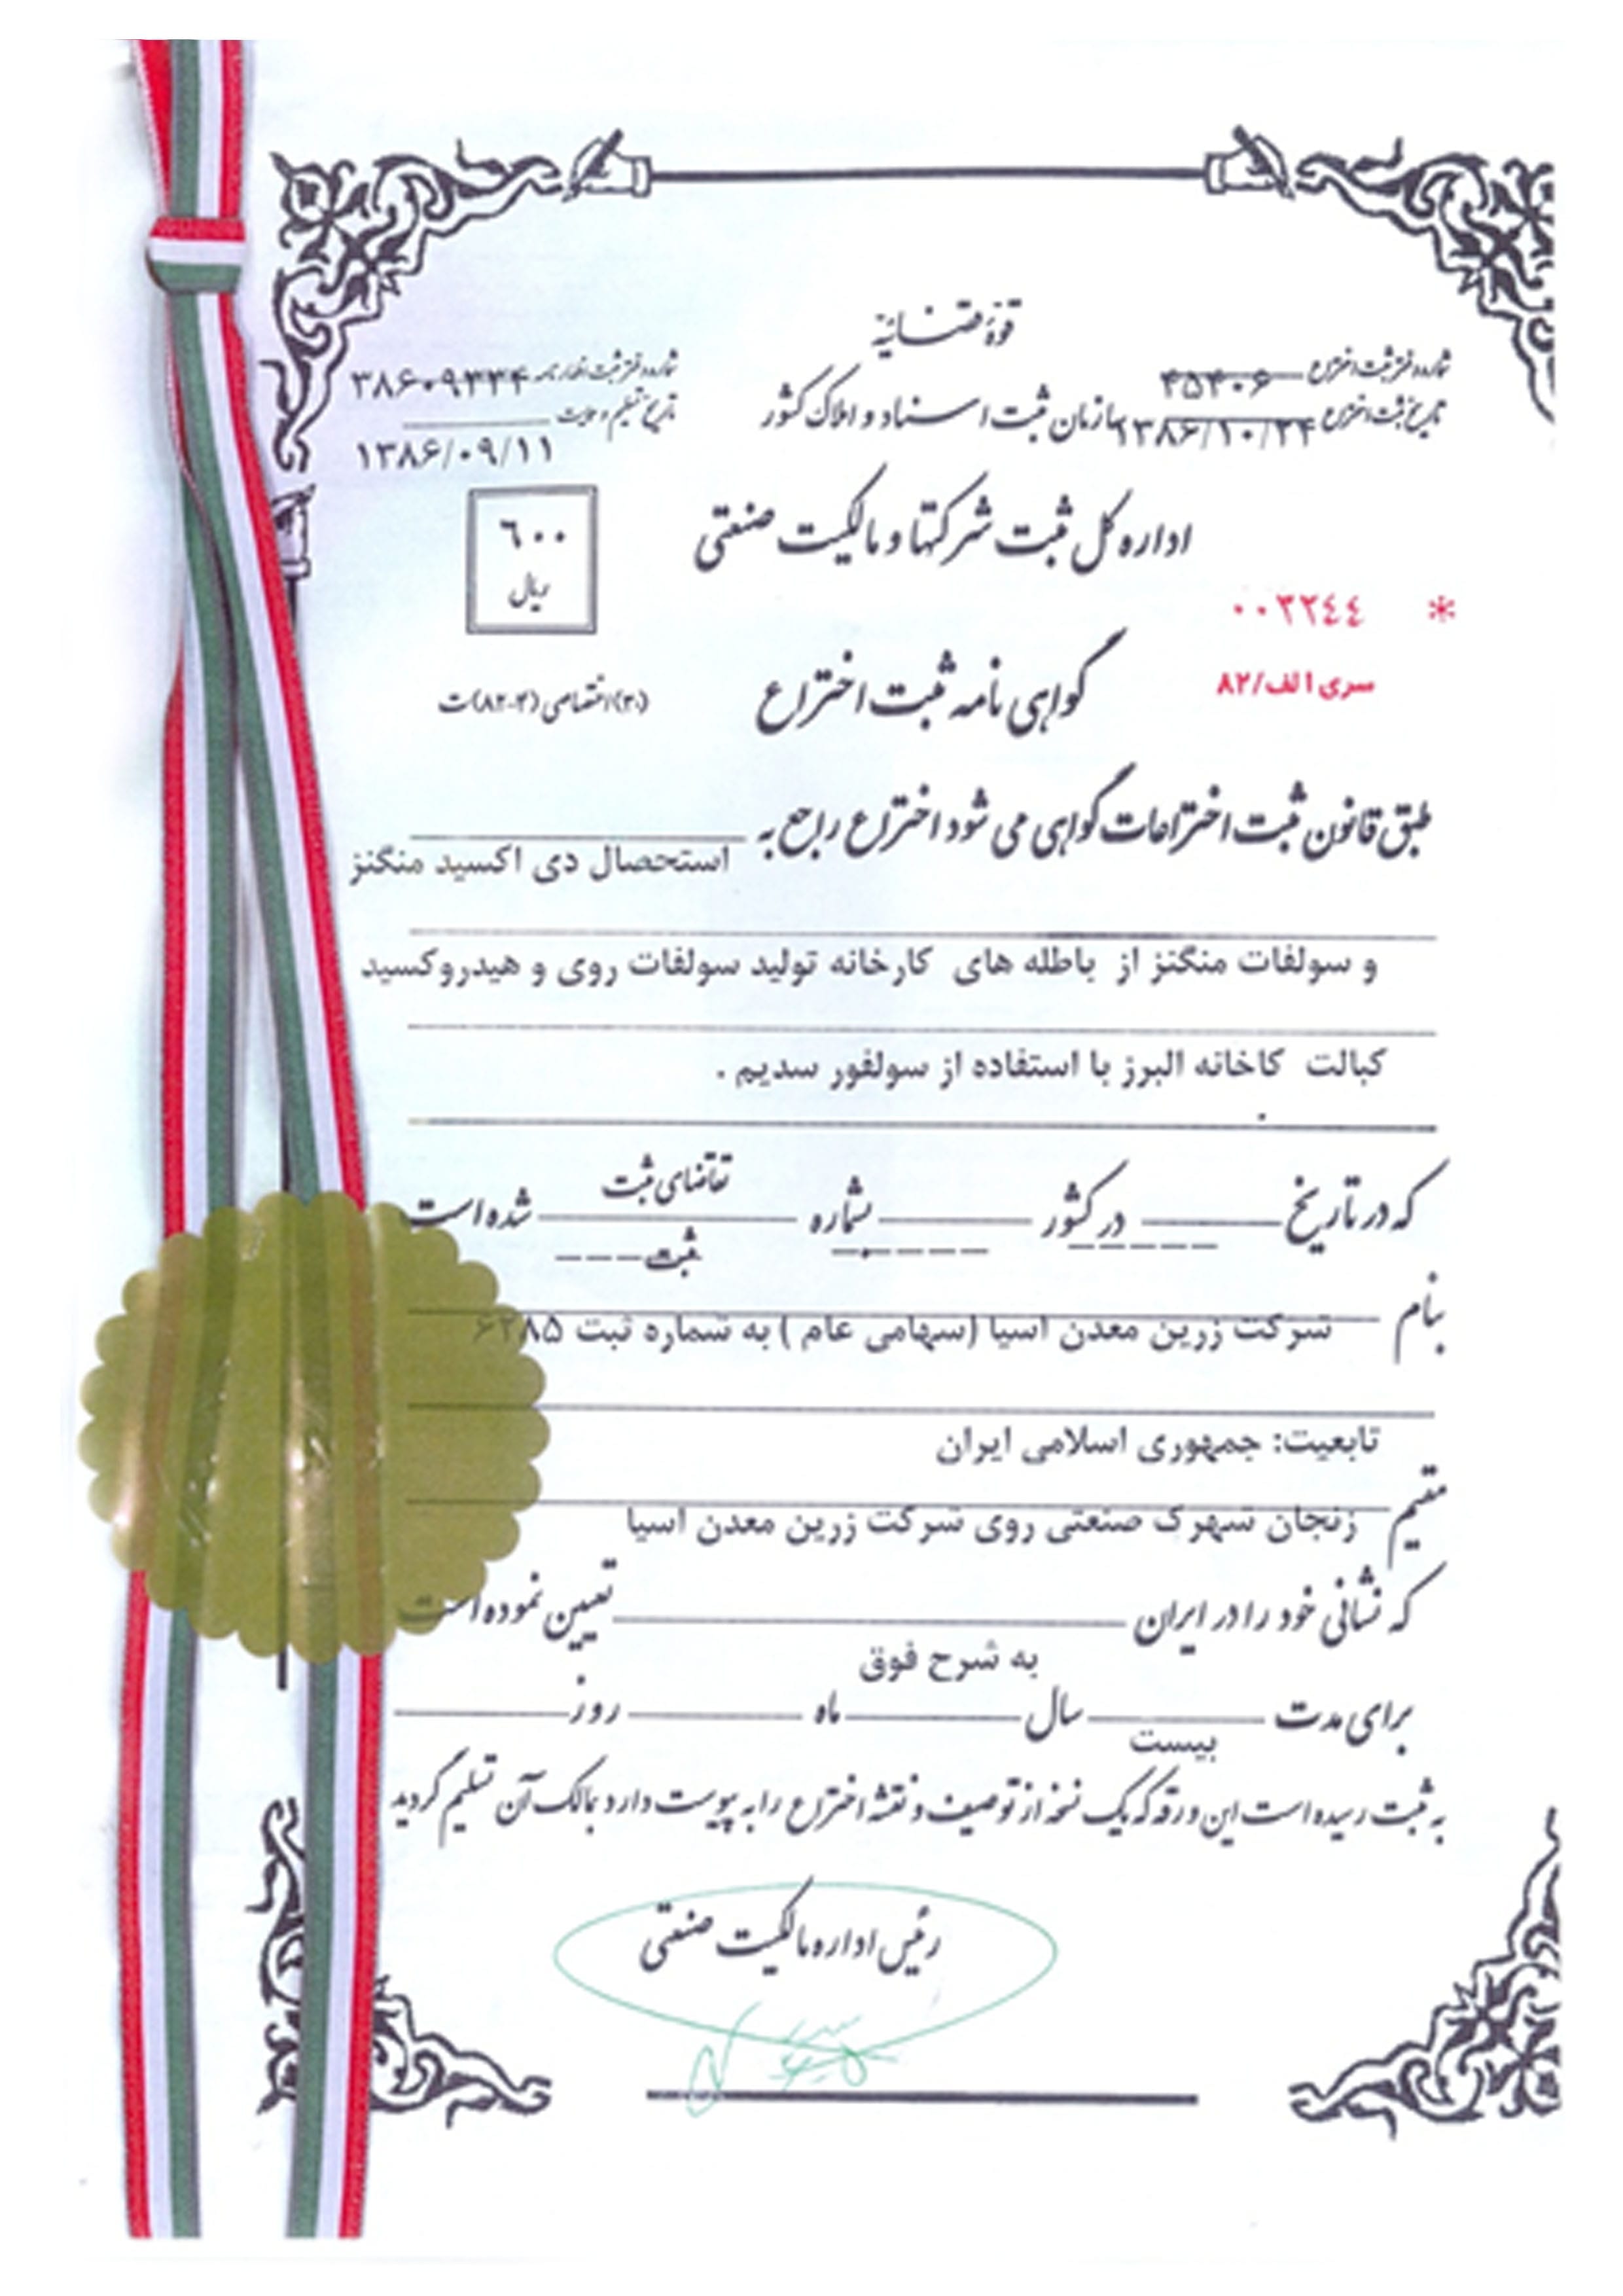 قوهٔ قضائیه
شماره دفتر ثبت اختراع ۴۵۴۰۶
شماره دفتر ثبت اظهارنامه ۳۸۶۰۹۳۳۴
سازمان ثبت اسناد و املاک کشور
تاریخ ثبت اختراع ۱۳۸۶/۱۰/۲۴
تاریخ تسلیم و ولایت
۱۳۸۶/۰۹/۱۱
اداره کل ثبت شرکتها و مالکیت صنعتی
٦٠٠
ریال
* ٠٠٢٢٤٤
سری الف/۸۲
گواهی نامه ثبت اختراع
(۳۰)اختصاصی (۴-۸۲)ت
طبق قانون ثبت اختراعات گواهی می شود اختراع راجع به
استحصال دی اکسید منگنز
و سولفات منگنز از باطله های کارخانه تولید سولفات روی و هیدروکسید
کبالت کاخانه البرز با استفاده از سولفور سدیم .
که در تاریخ ----- در کشور ----- بشماره ----- تقاضای ثبت شده است
ثبت ----
بنام شرکت زرین معدن اسیا (سهامی عام ) به شماره ثبت ۶۲۸۵
تابعیت: جمهوری اسلامی ایران
مقیم زنجان شهرک صنعتی روی شرکت زرین معدن اسیا
که نشانی خود را در ایران تعیین نموده است
به شرح فوق
برای مدت سال ماه روز
بیست
به ثبت رسیده است این ورقه که یک نسخه از توصیف و نقشه اختراع را به پیوست دارد بمالک آن تسلیم گردید
رئیس اداره مالکیت صنعتی